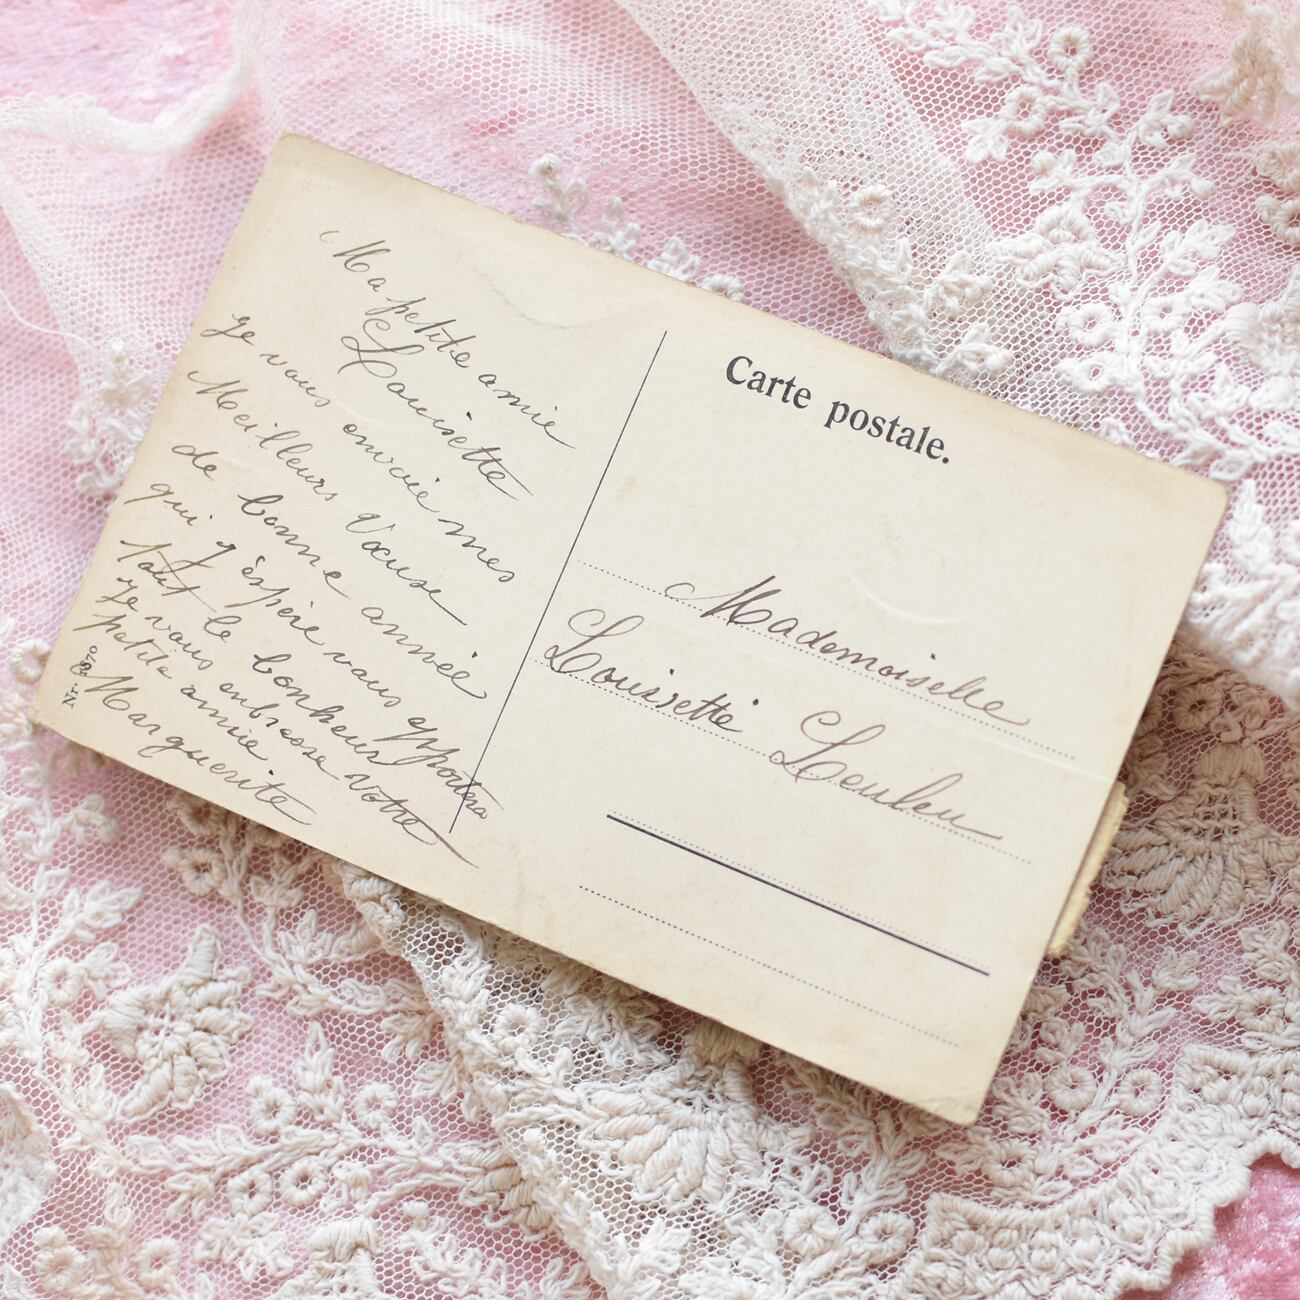 Ma petite amie
Louisette
je vous envoie mes
Meilleurs Vœuse
de bonne année
qui j'éspère vous apportera
tout le bonheur
je vous enbrasse votre
petite amie
Marguerite
Carte postale.
Mademoiselle
Louissette Leuleu